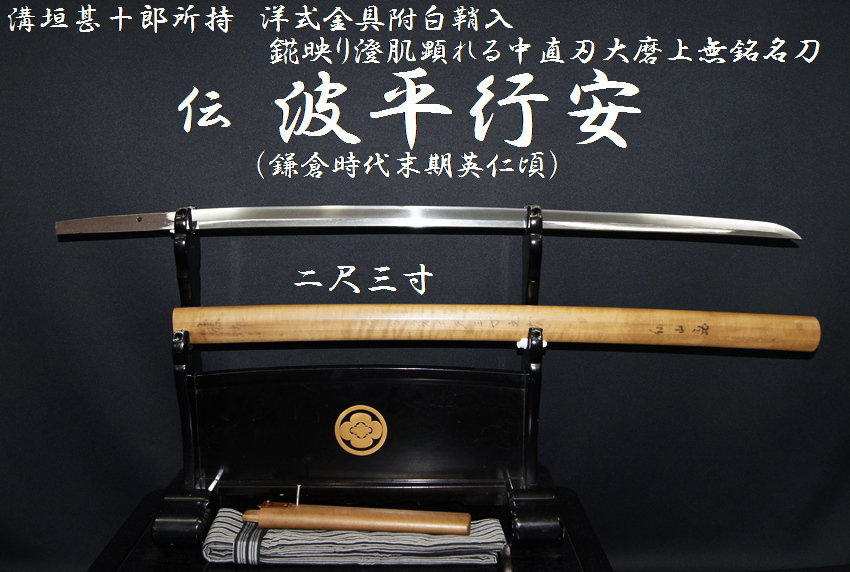 溝垣甚十郎所持 洋式金具附白鞘入
錵映り澄肌顕れる中直刃大磨上無銘名刀
伝 波平行安
(鎌倉時代末期英仁頃)
二尺三寸